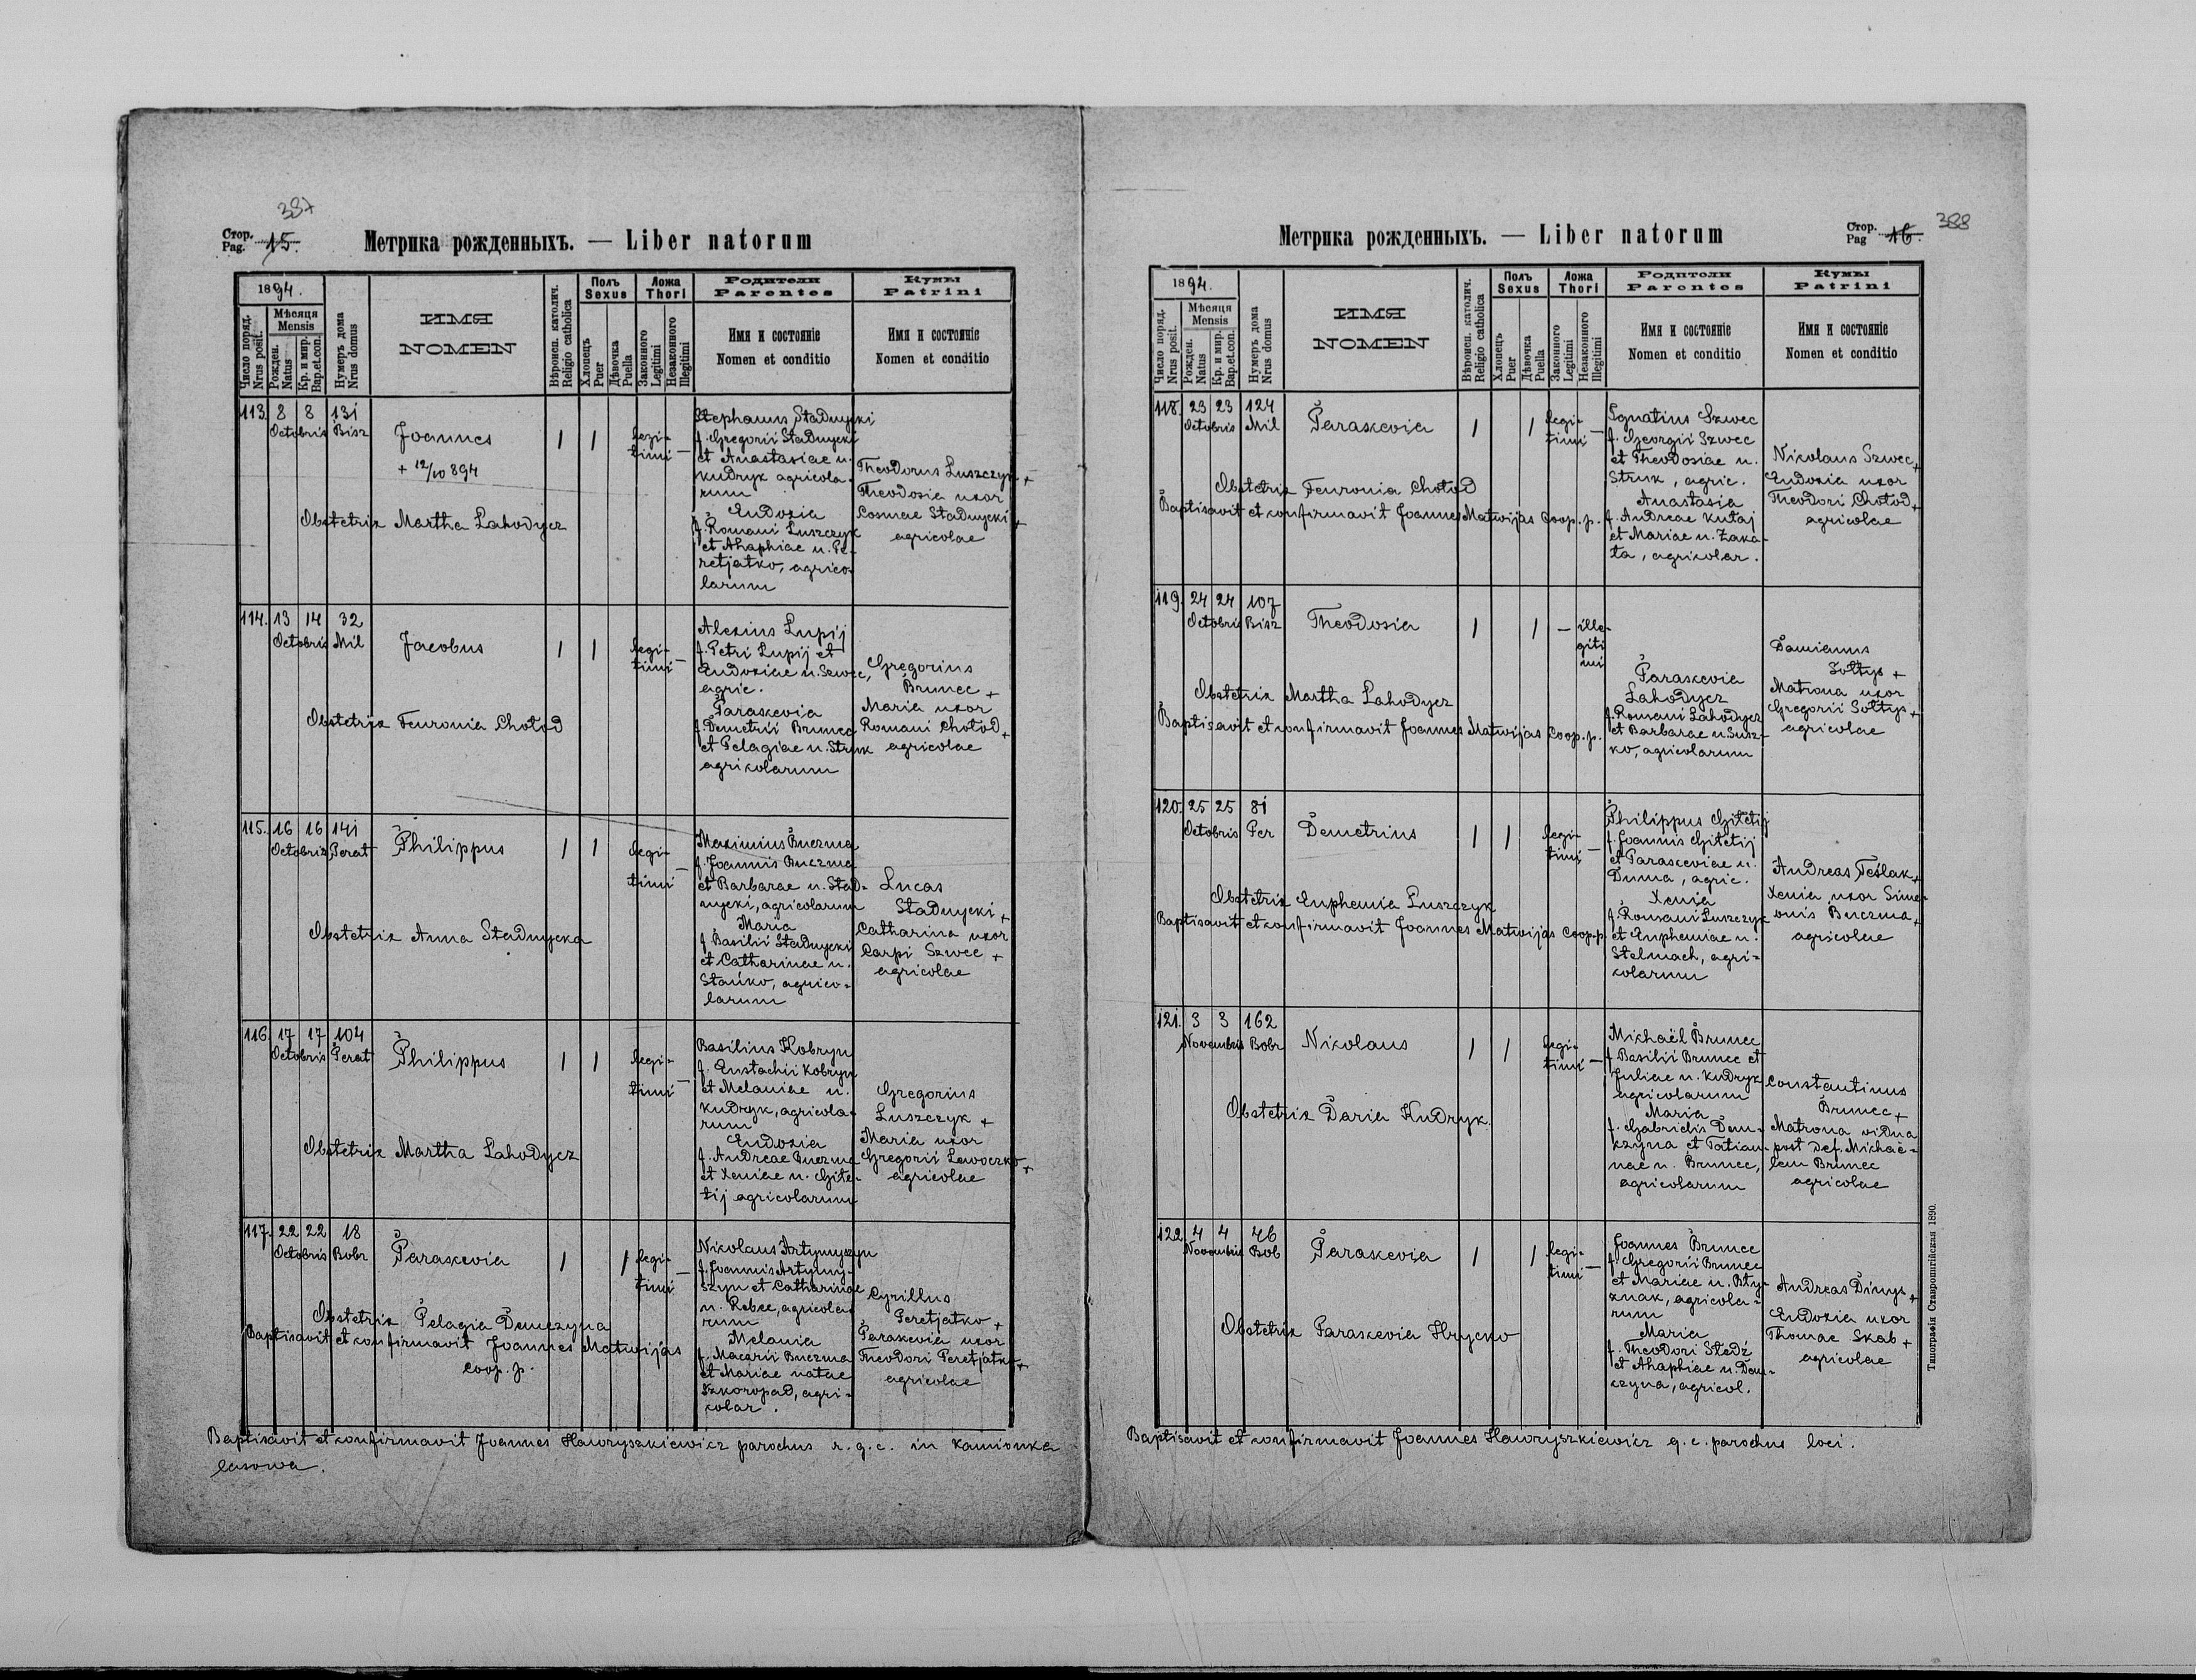 387
Стор.
Pag. 15.
Метрика рожденныхъ. — Liber natorum
1894.
Число поряд.
Nrus posit.
Мѣсяця
Mensis
Рожден.
Natus
Кр. и мир.
Bap.et.con.
Нумеръ дома
Nrus domus
ИМЯ
NOMEN
Вѣроисп. католич.
Religio catholica
Полъ
Sexus
Хлопецъ
Puer
Дѣвочка
Puella
Ложа
Thori
Законного
Legitimi
Незаконного
Illegitimi
Родители
Parentes
Имя и состояніе
Nomen et conditio
Кумы
Patrini
Имя и состояніе
Nomen et conditio
113. 8 8 131
Octobris Bisz
Joannes
+ 12/10 894
1 1 legi-
timi —
Stephanus Stadnycki
f. Gregorii Stadnycki
et Anastasiae n.
Kudryk agricola-
rum
Eudoxia
f. Romani Luszczyk
et Ahaphiae n. Pe-
retjatko, agrico-
larum
Theodorus Luszczyk +
Theodosia uxor
Cosmae Stadnycki +
agricolae
Obstetrix Martha Lahodycz
114. 13 14 32
Octobris Mil
Jacobus
1 1 legi-
timi —
Alexius Lupij
f. Petri Lupij et
Eudoxiae n. Szwec,
agric.
Paraskevia
f. Demetrii Brunec
et Pelagiae n. Struk
agricolarum
Gregorius
Brunec +
Maria uxor
Romani Chotod +
agricolae
Obstetrix Fevronia Chotod
115. 16 16 141
Octobris Perat
Philippus
1 1 legi-
timi —
Maximius Buczma
f. Joannis Buczma
et Barbarae n. Stad-
nycki, agricolarum
Maria
f. Basilii Stadnycki
et Catharinae n.
Stańko, agrico-
larum
Lucas
Stadnycki +
Catharina uxor
Carpi Szwec +
agricolae
Obstetrix Anna Stadnycka
116. 17 17 104
Octobris Perat
Philippus
1 1 legi-
timi —
Basilius Kobryn
f. Eustachii Kobryn
et Melaniae n.
Kudryk, agricola-
rum
Eudoxia
f. Andreae Buczma
et Xeniae n. Gite-
tij agricolarum
Gregorius
Luszczyk +
Maria uxor
Gregorii Lewoczko +
agricolae
Obstetrix Martha Lahodycz
117. 22 22 18
Octobris Bobr
Paraskevia
1 1 legi-
timi —
Nikolaus Artymyszyn
f. Joannis Artymy-
szyn et Catharinae
n. Rebec, agricola-
rum
Melania
f. Macarii Buczma
et Mariae natae
Szkoropad, agri-
colar.
Cyrillus
Peretjatko +
Paraskevia uxor
Theodori Peretjatko +
agricolae
Obstetrix Pelagia Demczyna
Baptisavit et confirmavit Joannes Matwijas
coop. p.
Baptisavit et confirmavit Joannes Hawryszkiewicz parochus r. g. c. in Kamionka
lasowa.
Метрика рожденныхъ. — Liber natorum
Стор.
Pag 16.
388
1894.
Число поряд.
Nrus posit.
Мѣсяця
Mensis
Рожден.
Natus
Кр. и мир.
Bap.et.con.
Нумеръ дома
Nrus domus
ИМЯ
NOMEN
Вѣроисп. католич.
Religio catholica
Полъ
Sexus
Хлопецъ
Puer
Дѣвочка
Puella
Ложа
Thori
Законного
Legitimi
Незаконного
Illegitimi
Родители
Parentes
Имя и состояніе
Nomen et conditio
Кумы
Patrini
Имя и состояніе
Nomen et conditio
118. 23 23 124
Octobris Mil
Paraskevia
1 1 legi-
timi —
Ignatius Szwec
f. Georgii Szwec
et Theodosiae n.
Struk, agric.
Anastasia
f. Andreae Kutaj
et Mariae n. Zaka-
ta, agricolar.
Nikolaus Szwec +
Eudoxia uxor
Theodori Chotod +
agricolae
Obstetrix Fevronia Chotod
Baptisavit et confirmavit Joannes Matwijas Coop. p.
119. 24 24 107
Octobris Bisz
Theodosia
1 1 — ille-
giti
mi
Paraskevia
Lahodycz
f. Romani Lahodycz
et Barbarae n. Susz-
ko, agricolarum
Damianus
Sołtys +
Matrona uxor
Gregorii Sołtys +
agricolae
Obstetrix Martha Lahodycz
Baptisavit et confirmavit Joannes Matwijas Coop. p.
120. 25 25 81
Octobris Per
Demetrius
1 1 legi-
timi —
Philippus Gitetij
f. Joannis Gitetij
et Paraskeviae n.
Duma, agric.
Xenia
f. Romani Luszczyk
et Euphemiae n.
Stelmach, agri-
colarum
Andreas Teślak +
Xenia uxor Sime-
onis Buczma +
agricolae
Obstetrix Euphemia Luszczyk
Baptisavit et confirmavit Joannes Matwijas Coop. p.
121. 3 3 162
Novembris Bobr
Nikolaus
1 1 legi-
timi —
Michaël Brunec
f. Basilii Brunec et
Juliae n. Kudryk
agricolarum
Maria
f. Gabrielis Dem-
czyna et Tatian-
nae n. Brunec,
agricolarum
Constantinus
Brunec +
Matrona vidua
post def. Michaë-
lem Brunec
agricolae
Obstetrix Daria Kudryk.
122. 4 4 46
Novembris Bob
Paraskevia
1 1 legi-
timi —
Joannes Brunec
f. Gregorii Brunec
et Mariae n. Bty-
znak, agricola-
rum
Maria
f. Theodori Stedź
et Ahaphiae n. Dem-
czyna, agricol.
Andreas Dinys +
Eudoxia uxor
Thomae Skab +
agricolae
Obstetrix Paraskevia Hrycko
Baptisavit et confirmavit Joannes Hawryszkiewicz g. c. parochus loci.
Типографія Ставропигійская 1890.